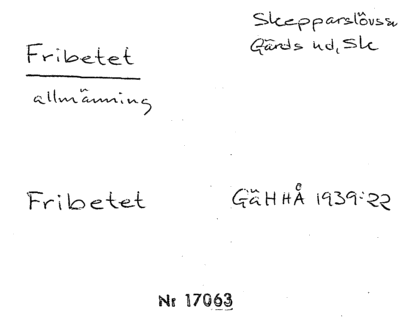 Fribetet
allmänning
Skepparslövs sn
Gärds hd, Sk
Fribetet
GäHHÅ 1939:22
Nr 17063